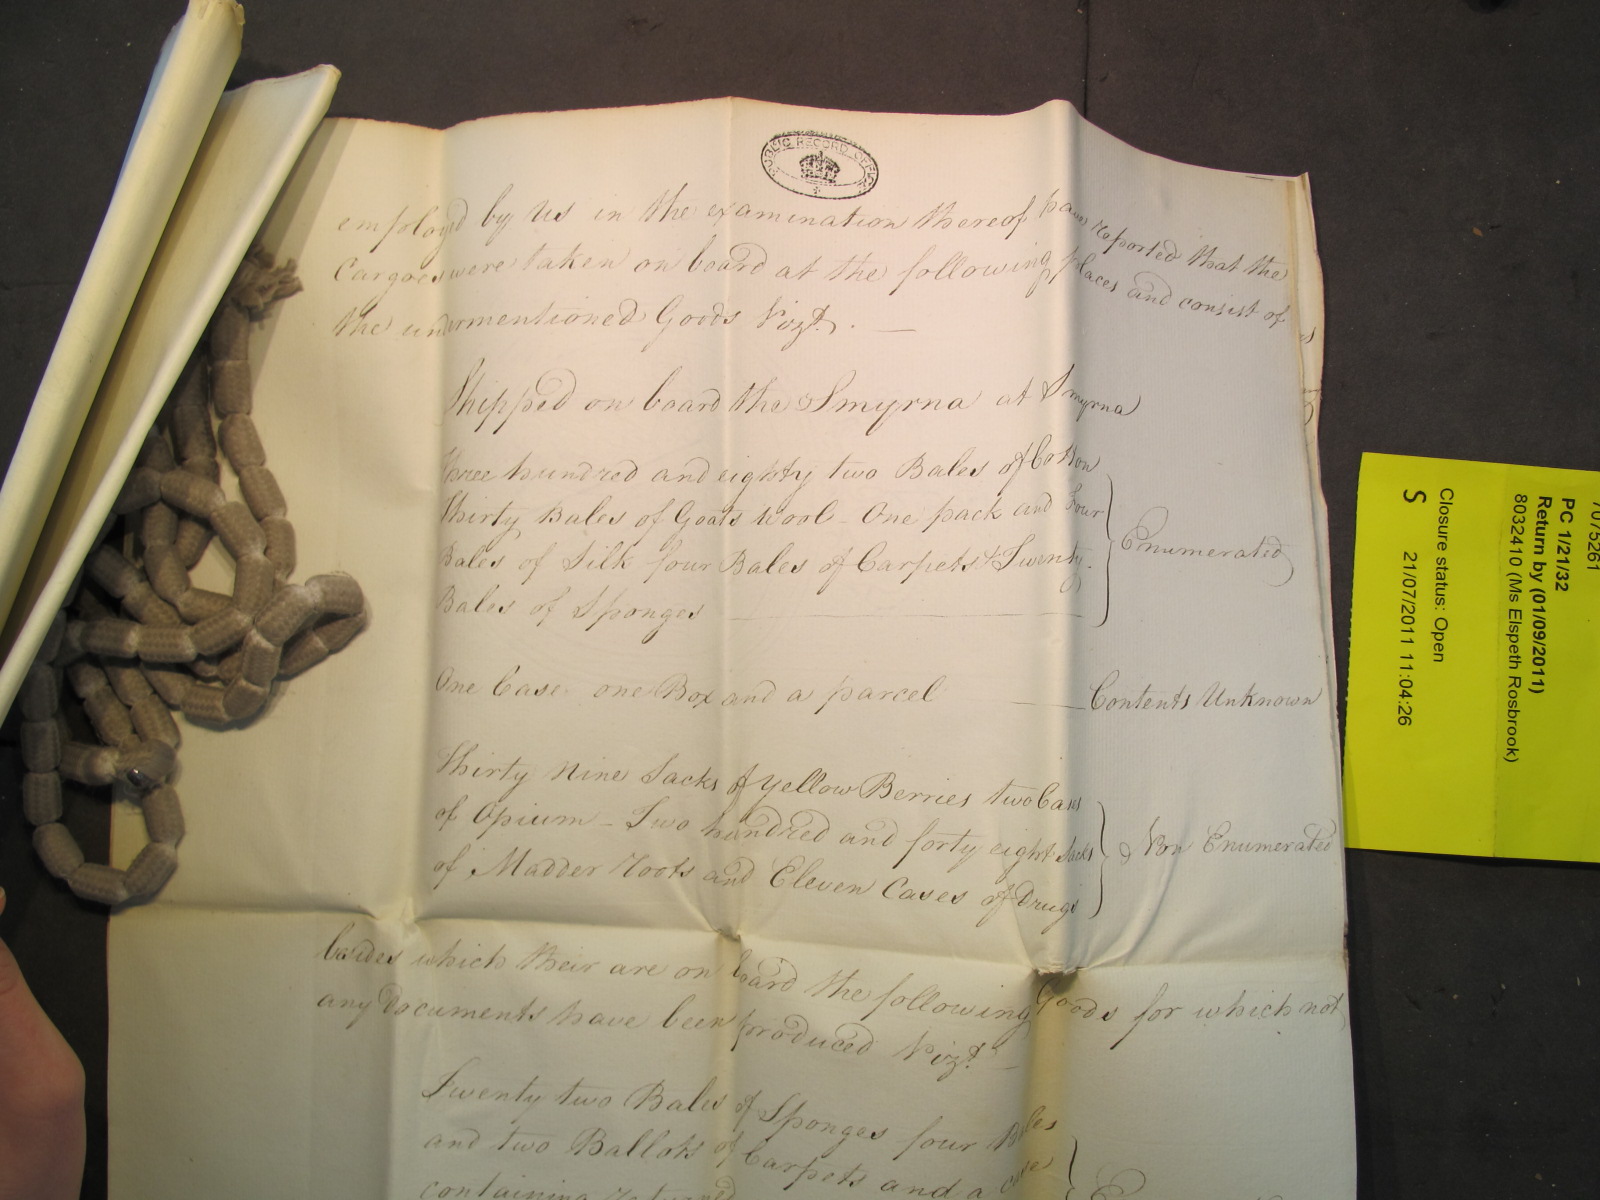 PUBLIC RECORD OFFICE
employ'd by Us in the examination thereof have reported that the
Cargoes were taken on board at the following places and consist of
the undermentioned Goods Vizt. —
Shipped on board the Smyrna at Smyrna
Three hundred and eighty two Bales of Cotton
Thirty Bales of Goats Wool - One pack and Four
Bales of Silk four Bales of Carpets & Twenty
Bales of Sponges
Enumerated
One Case one Box and a parcel — Contents Unknown
Thirty Nine Sacks of Yellow Berries two Cases
of Opium - Two hundred and forty eight Sacks
of Madder Roots and Eleven Cases of Drugs
Non Enumerated
besides which their are on board the following Goods for which not
any Documents have been produced Vizt. —
Twenty two Bales of Sponges four Bales
and two Ballots of Carpets and a case
containing returned
7075261
PC 1/21/32
Return by (01/09/2011)
8032410 (Ms Elspeth Rosbrook)
Closure status: Open
S 21/07/2011 11:04:26